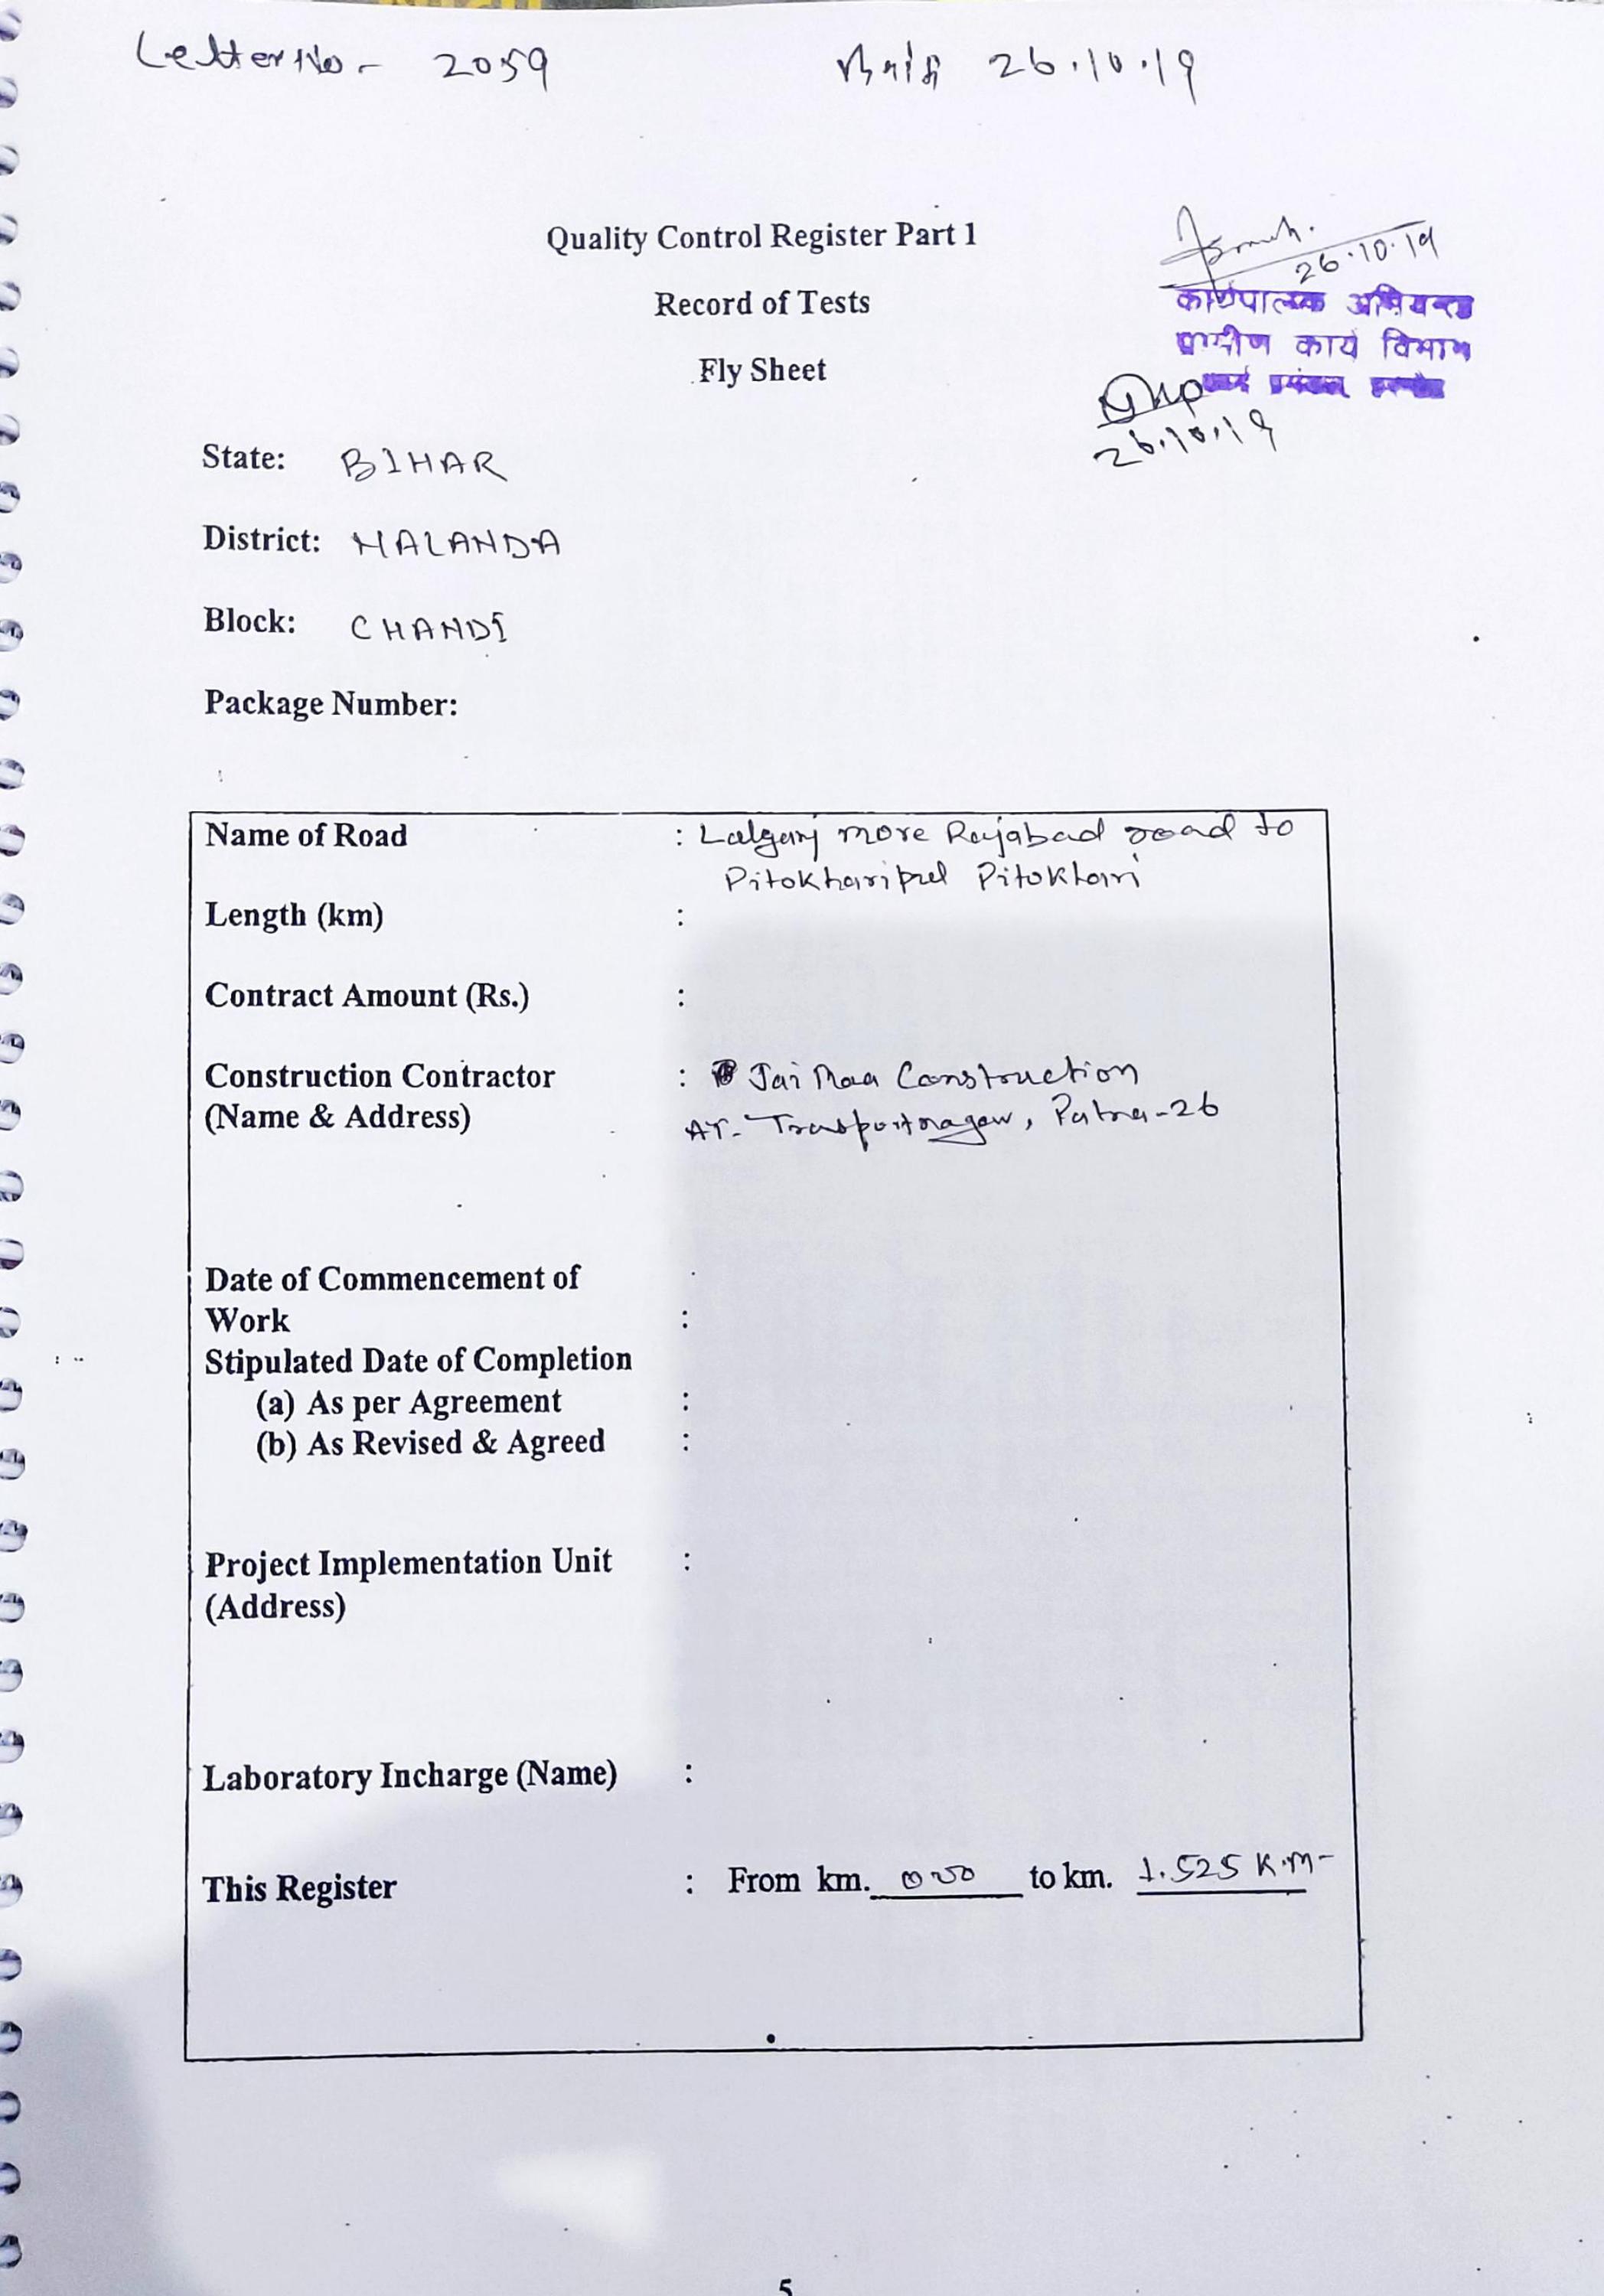 Letter No - 2059 दिनांक 26.10.19
Quality Control Register Part 1
Record of Tests
Fly Sheet
26.10.19
कार्यपालक अभियन्ता
ग्रामीण कार्य विभाग
26.10.19
State: BIHAR
District: NALANDA
Block: CHANDI
Package Number:
Name of Road : Lalganj more Rajabad road to
Pitokharipul Pitokhari
Length (km) :
Contract Amount (Rs.) :
Construction Contractor : Jai Maa Construction
(Name & Address) AT- Trasportnagar, Patna-26
Date of Commencement of
Work :
Stipulated Date of Completion
(a) As per Agreement :
(b) As Revised & Agreed :
Project Implementation Unit :
(Address)
Laboratory Incharge (Name) :
This Register : From km. 000 to km. 1.525 K.m-
5